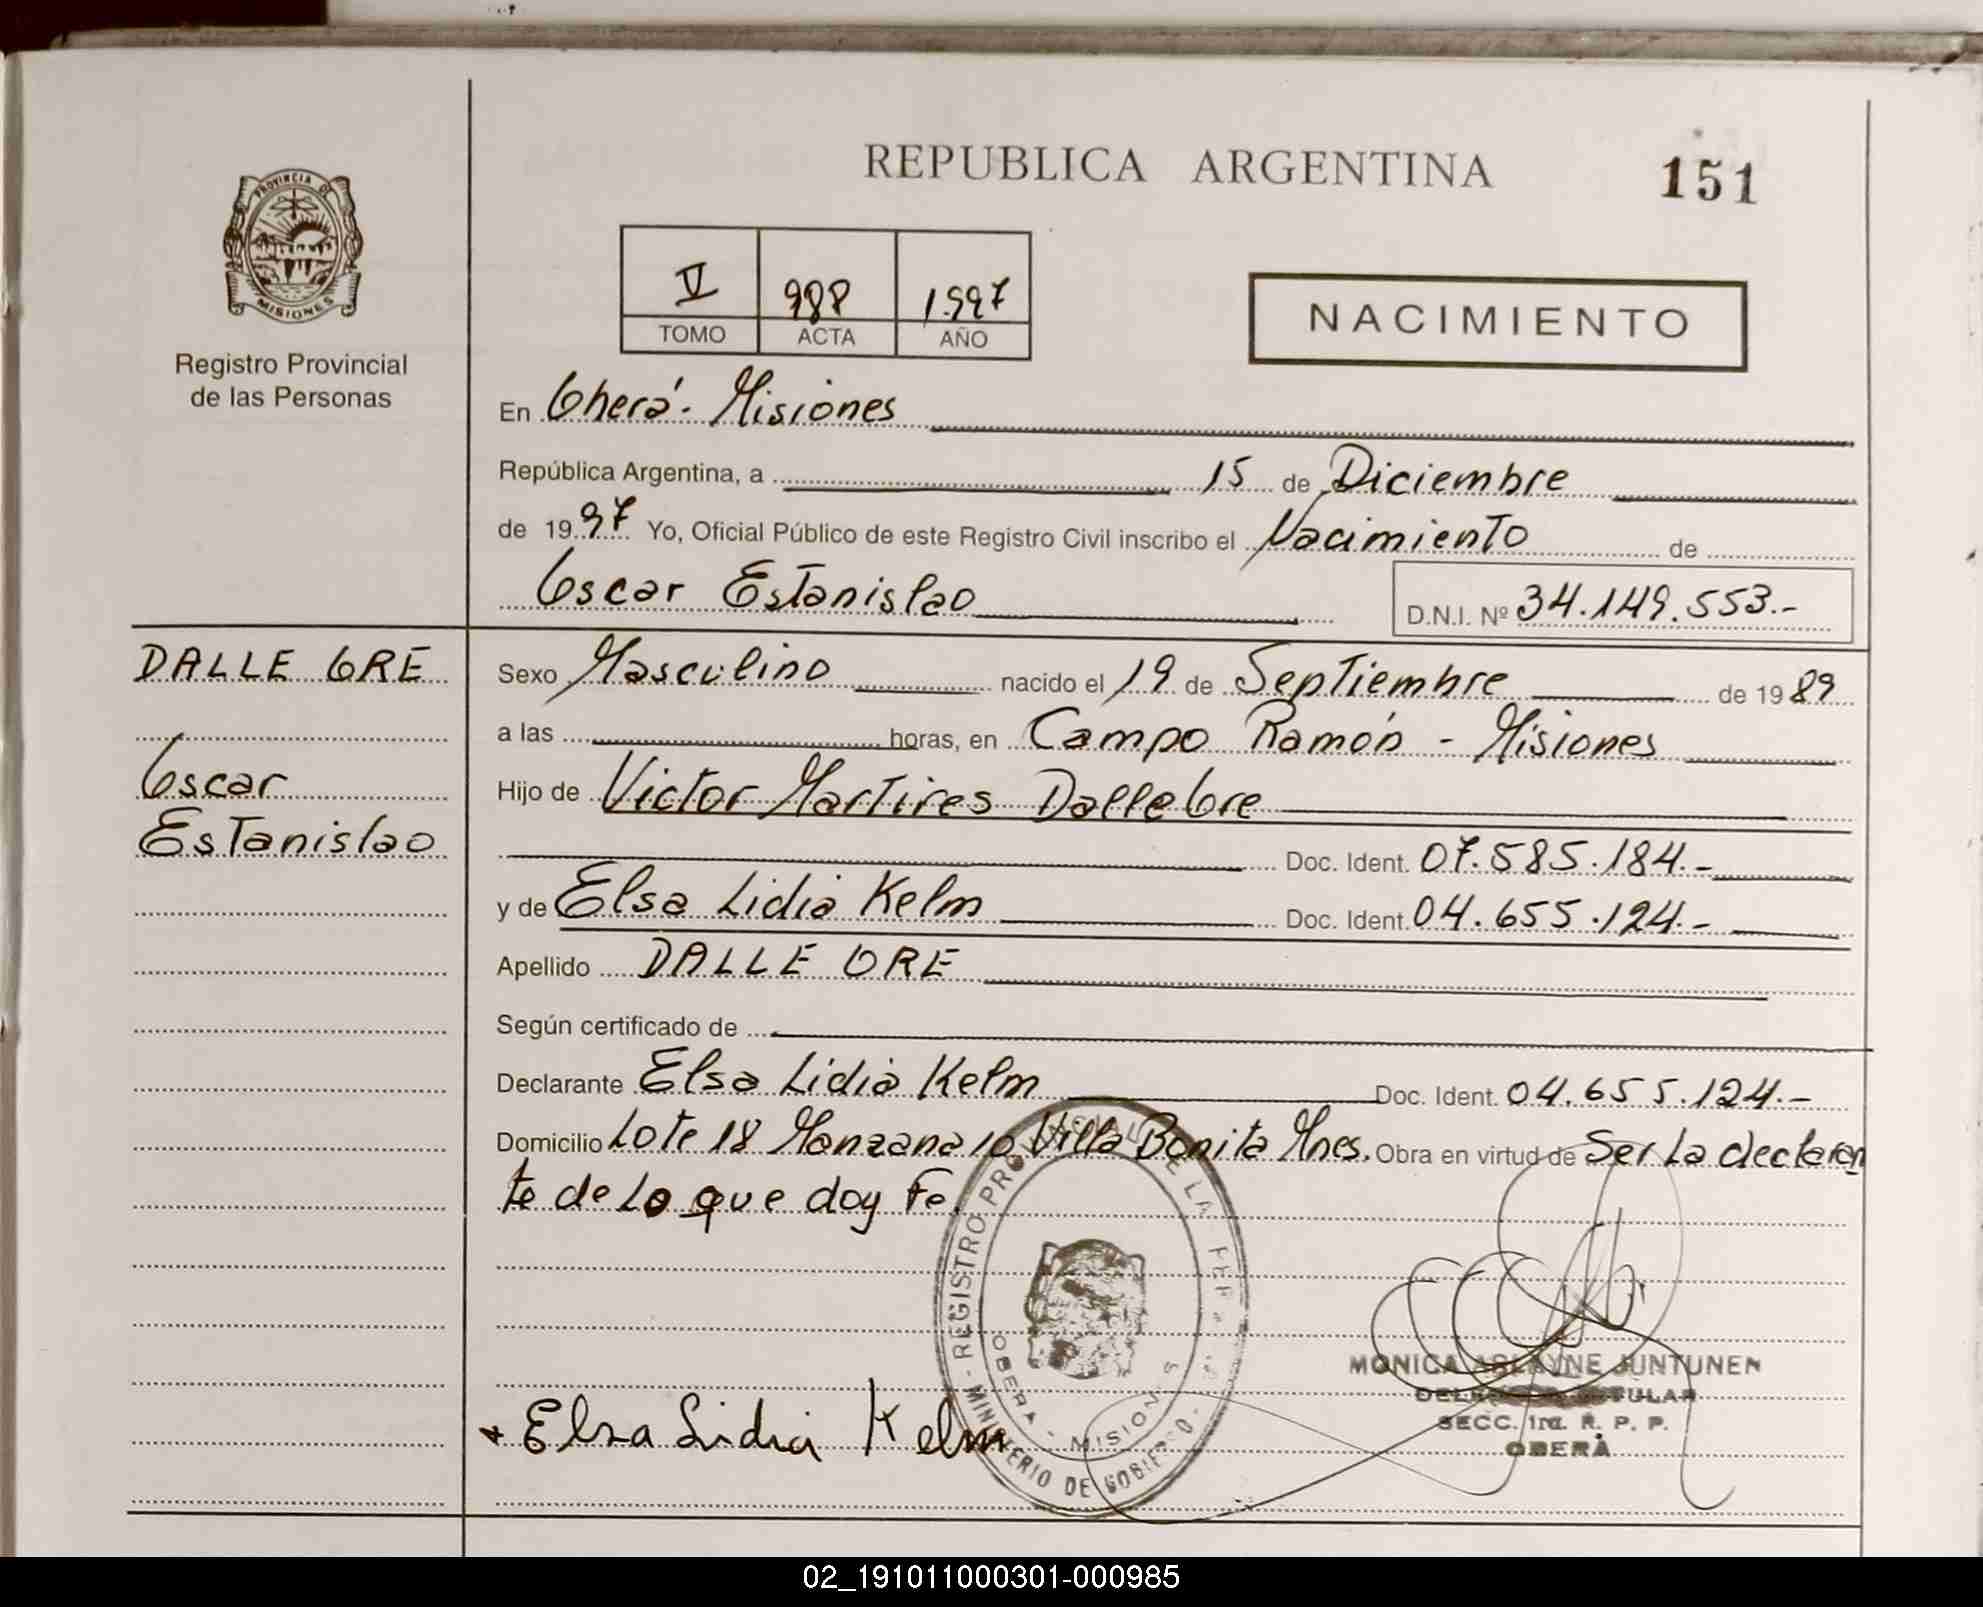 REPUBLICA ARGENTINA
151
PROVINCIA DE
MISIONES
Registro Provincial
de las Personas
V 988 1.997
TOMO ACTA AÑO
NACIMIENTO
En Oberá - Misiones
República Argentina, a 15 de Diciembre
de 1997 Yo, Oficial Público de este Registro Civil inscribo el Nacimiento de
Oscar Estanislao D.N.I. Nº 34.149.553.-
DALLE ORE
Oscar
Estanislao
Sexo Masculino nacido el 19 de Septiembre de 1989
a las horas, en Campo Ramón - Misiones
Hijo de Victor Martires Dalle Ore
Doc. Ident. 07.585.184.-
y de Elsa Lidia Kelm Doc. Ident. 04.655.124.-
Apellido DALLE ORE
Según certificado de
Declarante Elsa Lidia Kelm Doc. Ident. 04.655.124.-
Domicilio Lote 18 Manzana 10 Villa Bonita Mnes. Obra en virtud de Ser La declaran
te de Lo que doy Fe.
REGISTRO PROVINCIAL DE LA
OBERA - MISIONES
MINISTERIO DE GOBIERNO
MONICA JUNTUNEN
SECC. 1ra. R. P. P.
OBERÁ
Elsa Lidia Kelm
02_191011000301-000985